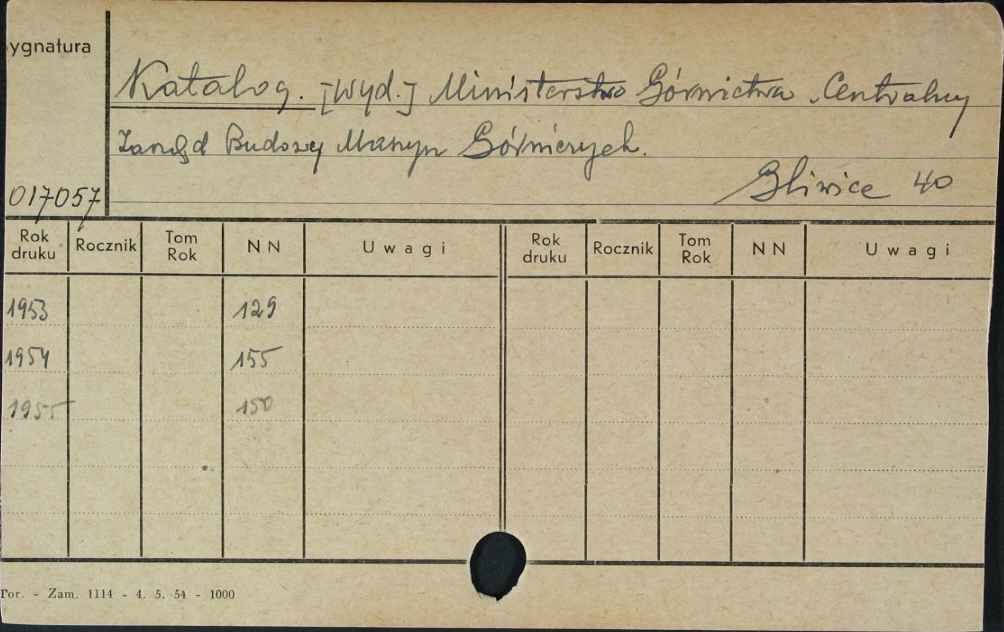 ygnatura
Katalog. [Wyd.] Ministerstwo Górnictwa. Centralny
Zarząd Budowy Maszyn Górniczych.
Gliwice 40
017057
Rok druku Rocznik Tom Rok NN Uwagi Rok druku Rocznik Tom Rok NN Uwagi
1953 129
1954 155
1955 150
Por. - Zam. 1114 - 4. 5. 54 - 1000